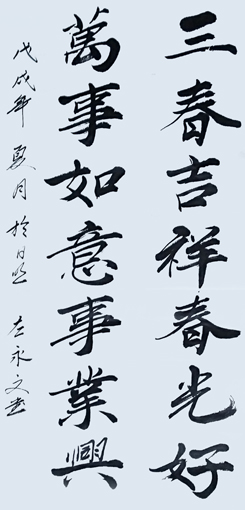 三春吉祥春光好
萬事如意事業興
戊戌年夏月於日照左永文書